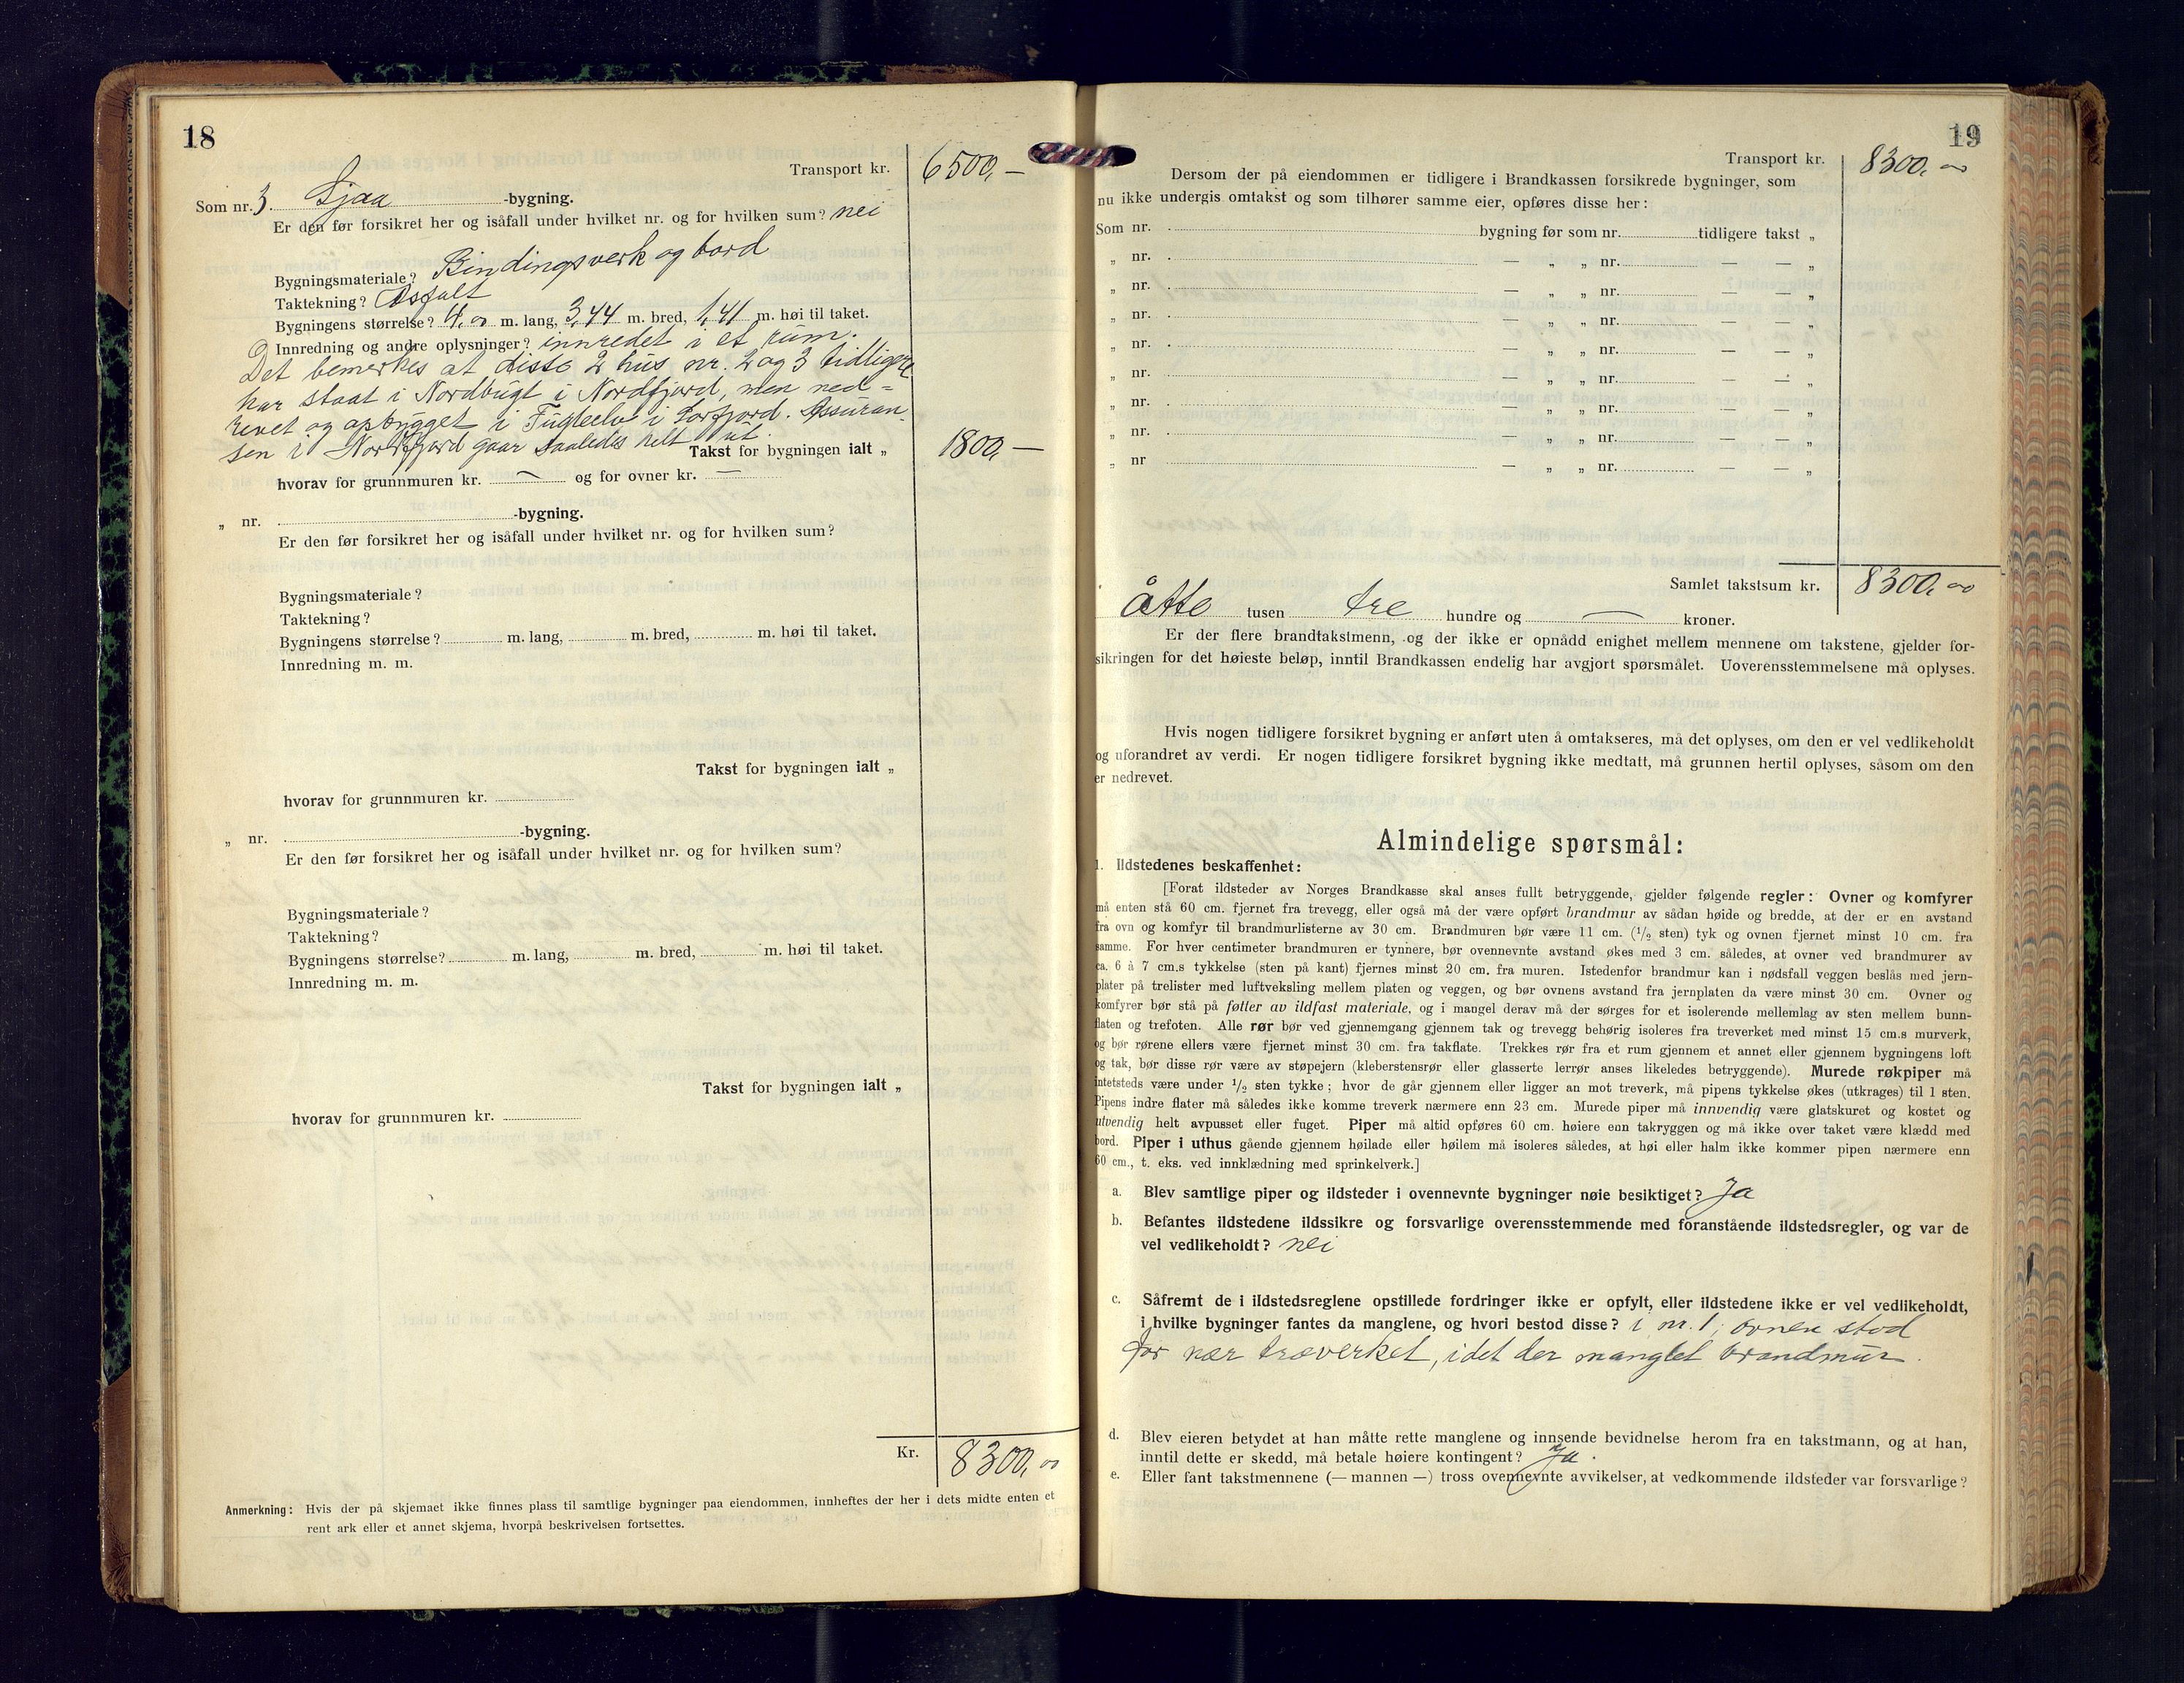 18
Transport kr. 6500,—
Som nr. 3. Sjaa -bygning.
Er den før forsikret her og isåfall under hvilket nr. og for hvilken sum? nei
Bygningsmateriale? Bindingsverk og bord
Taktekning? Asfalt
Bygningens størrelse? 4,00 m. lang, 3,44 m. bred, 1,41 m. høi til taket.
Innredning og andre oplysninger? innredet i et rum.
Det bemerkes at disse 2 hus nr. 2 og 3 tidligere
har staat i Nordbugt i Nordfjord, men ned-
revet og opbygget i Fugleelv i Sorfjord. Assuran-
sen i Nordfjord gaar saaledes helt ut.
Takst for bygningen ialt „ 1800,—
hvorav for grunnmuren kr. — og for ovner kr. —
„ nr. -bygning.
Er den før forsikret her og isåfall under hvilket nr. og for hvilken sum?
Bygningsmateriale?
Taktekning?
Bygningens størrelse? m. lang, m. bred, m. høi til taket.
Innredning m. m.
Takst for bygningen ialt „
hvorav for grunnmuren kr.
„ nr. -bygning.
Er den før forsikret her og isåfall under hvilket nr. og for hvilken sum?
Bygningsmateriale?
Taktekning?
Bygningens størrelse? m. lang, m. bred, m. høi til taket.
Innredning m. m.
Takst for bygningen ialt „
hvorav for grunnmuren kr.
Kr. 8300,00
Anmerkning: Hvis der på skjemaet ikke finnes plass til samtlige bygninger paa eiendommen, innheftes der her i dets midte enten et
rent ark eller et annet skjema, hvorpå beskrivelsen fortsettes.
19
Transport kr. 8300,00
Dersom der på eiendommen er tidligere i Brandkassen forsikrede bygninger, som
nu ikke undergis omtakst og som tilhører samme eier, opføres disse her:
Som nr. bygning før som nr. tidligere takst „
„ nr. — „ „ nr. — — „
„ nr. — „ „ nr. — — „
„ nr. — „ „ nr. — — „
„ nr. — „ „ nr. — — „
„ nr. — „ „ nr. — — „
„ nr. — „ „ nr. — — „
„ nr. — „ „ nr. — — „
„ nr — „ „ nr. — — „
Samlet takstsum kr. 8300,00
åtte tusen tre hundre og — kroner.
Er der flere brandtakstmenn, og der ikke er opnådd enighet mellem mennene om takstene, gjelder for-
sikringen for det høieste beløp, inntil Brandkassen endelig har avgjort spørsmålet. Uoverensstemmelsene må oplyses.
Hvis nogen tidligere forsikret bygning er anført uten å omtakseres, må det oplyses, om den er vel vedlikeholdt
og uforandret av verdi. Er nogen tidligere forsikret bygning ikke medtatt, må grunnen hertil oplyses, såsom om den
er nedrevet.
Almindelige spørsmål:
1. Ildstedenes beskaffenhet:
[Forat ildsteder av Norges Brandkasse skal anses fullt betryggende, gjelder følgende regler: Ovner og komfyrer
må enten stå 60 cm. fjernet fra trevegg, eller også må der være opført brandmur av sådan høide og bredde, at der er en avstand
fra ovn og komfyr til brandmurlisterne av 30 cm. Brandmuren bør være 11 cm. (1/2 sten) tyk og ovnen fjernet minst 10 cm. fra
samme. For hver centimeter brandmuren er tynnere, bør ovennevnte avstand økes med 3 cm. således, at ovner ved brandmurer av
ca. 6 à 7 cm.s tykkelse (sten på kant) fjernes minst 20 cm. fra muren. Istedenfor brandmur kan i nødsfall veggen beslås med jern-
plater på trelister med luftveksling mellem platen og veggen, og bør ovnens avstand fra jernplaten da være minst 30 cm. Ovner og
komfyrer bør stå på føtter av ildfast materiale, og i mangel derav må der sørges for et isolerende mellemlag av sten mellem bunn-
flaten og trefoten. Alle rør bør ved gjennemgang gjennem tak og trevegg behørig isoleres fra treverket med minst 15 cm.s murverk,
og bør rørene ellers være fjernet minst 30 cm. fra takflate. Trekkes rør fra et rum gjennem et annet eller gjennem bygningens loft
og tak, bør disse rør være av støpejern (kleberstensrør eller glasserte lerrør anses likeledes betryggende). Murede røkpiper må
intetsteds være under 1/2 sten tykke; hvor de går gjennem eller ligger an mot treverk, må pipens tykkelse økes (utkrages) til 1 sten.
Pipens indre flater må således ikke komme treverk nærmere enn 23 cm. Murede piper må innvendig være glatskuret og kostet og
utvendig helt avpusset eller fuget. Piper må altid opføres 60 cm. høiere enn takryggen og må ikke over taket være klædd med
bord. Piper i uthus gående gjennem høilade eller høilem må isoleres således, at høi eller halm ikke kommer pipen nærmere enn
60 cm., t. eks. ved innklædning med sprinkelverk.]
a. Blev samtlige piper og ildsteder i ovennevnte bygninger nøie besiktiget? Ja
b. Befantes ildstedene ildssikre og forsvarlige overensstemmende med foranstående ildstedsregler, og var de
vel vedlikeholdt? nei
c. Såfremt de i ildstedsreglene opstillede fordringer ikke er opfylt, eller ildstedene ikke er vel vedlikeholdt,
i hvilke bygninger fantes da manglene, og hvori bestod disse? i nr. 1, ovnen stod
for nær træverket, idet der manglet brandmur.
d. Blev eieren betydet at han måtte rette manglene og innsende bevidnelse herom fra en takstmann, og at han,
inntil dette er skedd, må betale høiere kontingent? Ja.
e. Eller fant takstmennene (— mannen —) tross ovennevnte avvikelser, at vedkommende ildsteder var forsvarlige?